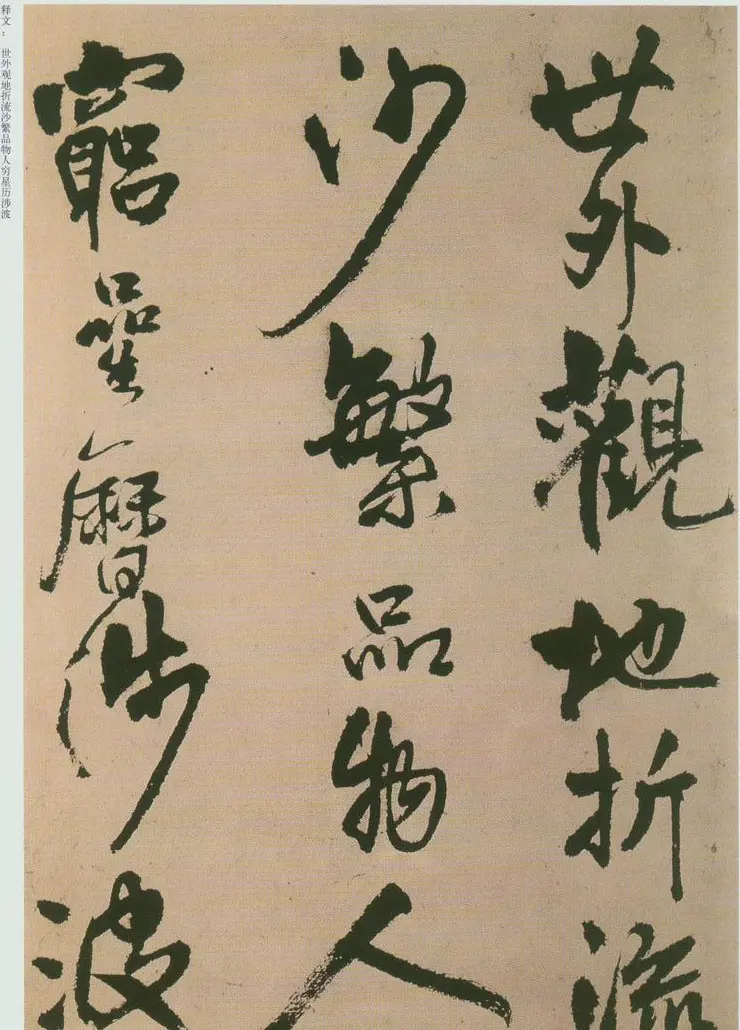 释文： 世外观地折流沙繁品物人穷星历涉波
世外觀地折流
沙繁品物人
窮星曆涉波